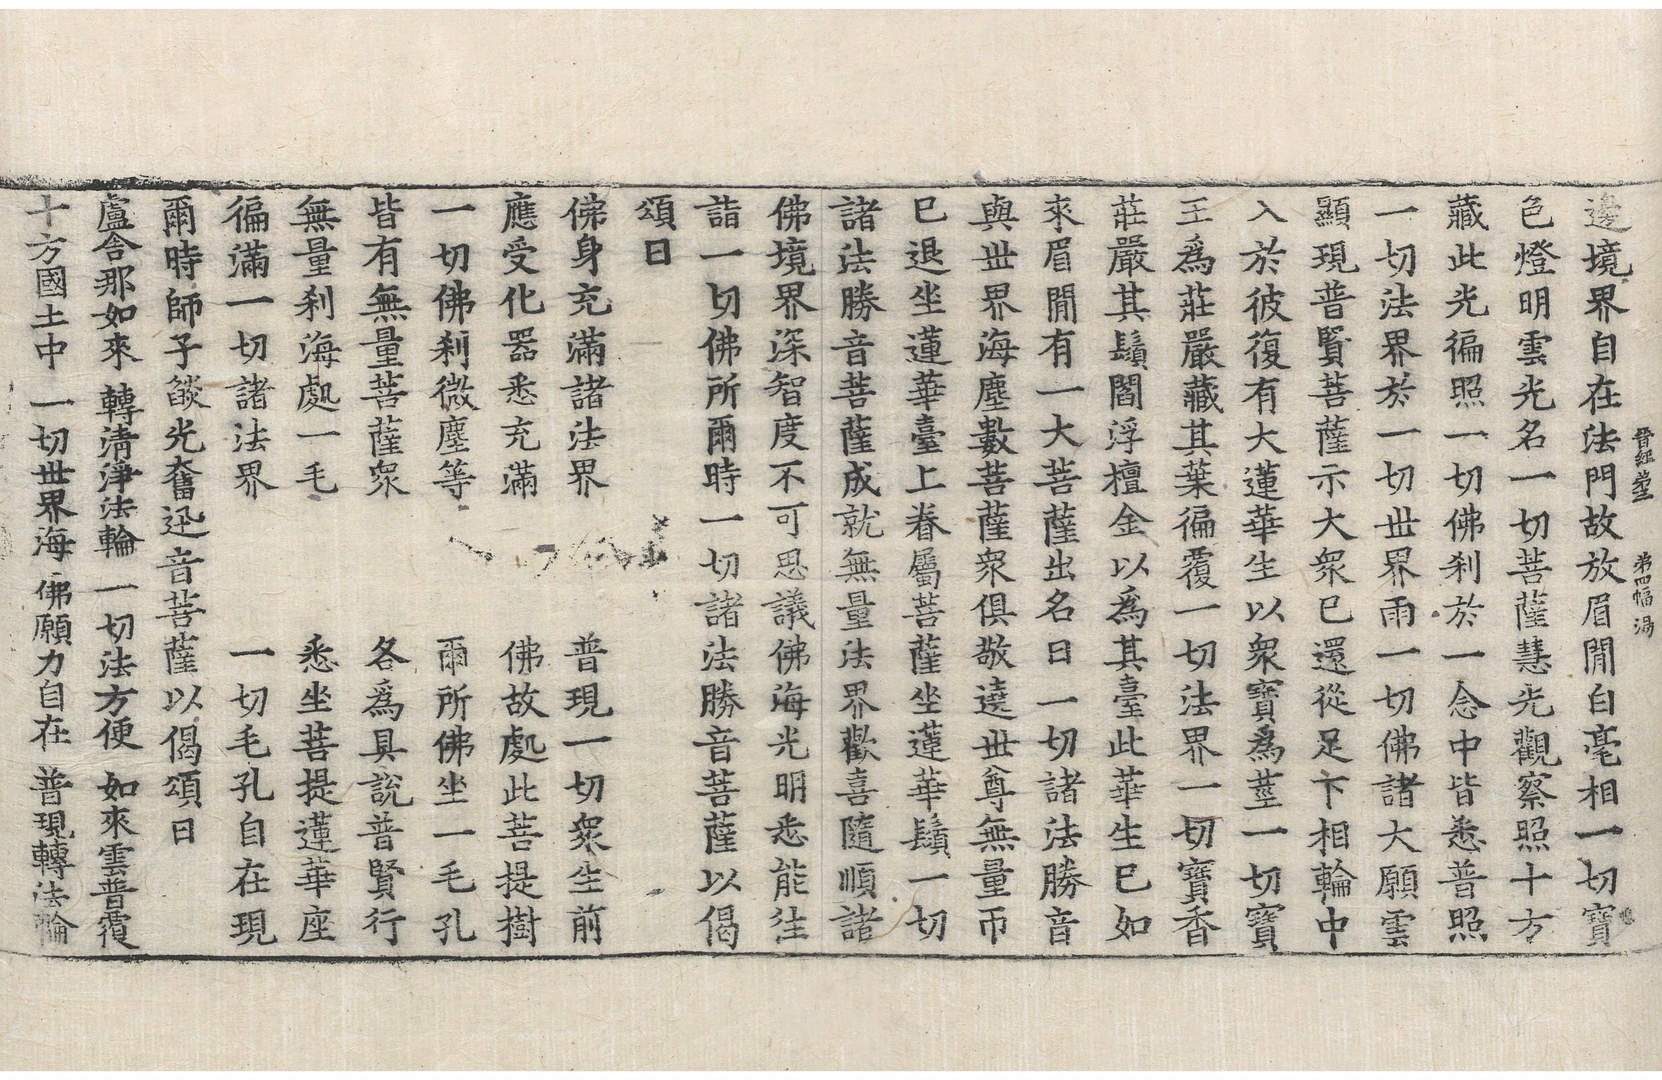 晉經第三　第四幅　湯
邊境界自在法門故放眉閒白毫相一切寶
色燈明雲光名一切菩薩慧光觀察照十方
藏此光徧照一切佛刹於一念中皆悉普照
一切法界於一切世界雨一切佛諸大願雲
顯現普賢菩薩示大衆已還從足下相輪中
入於彼復有大蓮華生以衆寶爲莖一切寶
王爲莊嚴藏其葉徧覆一切法界一切寶香
莊嚴其鬚閻浮檀金以爲其臺此華生已如
來眉閒有一大菩薩出名曰一切諸法勝音
與世界海塵數菩薩衆俱敬遶世尊無量帀
已退坐蓮華臺上眷屬菩薩坐蓮華鬚一切
諸法勝音菩薩成就無量法界歡喜隨順諸
佛境界深智度不可思議佛海光明悉能往
詣一切佛所爾時一切諸法勝音菩薩以偈
頌曰
佛身充滿諸法界　普現一切衆生前
應受化器悉充滿　佛故處此菩提樹
一切佛刹微塵等　爾所佛坐一毛孔
皆有無量菩薩衆　各爲具說普賢行
無量刹海處一毛　悉坐菩提蓮華座
徧滿一切諸法界　一切毛孔自在現
爾時師子燄光奮迅音菩薩以偈頌曰
盧舍那如來　轉淸淨法輪　一切法方便　如來雲普覆
十方國土中　一切世界海　佛願力自在　普現轉法輪